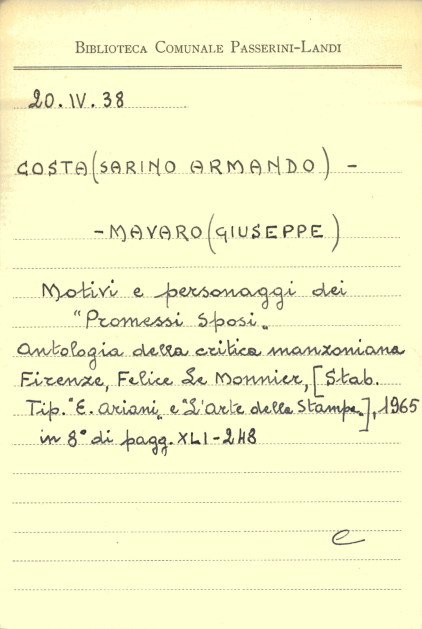 BIBLIOTECA COMUNALE PASSERINI-LANDI
20.IV.38
COSTA (SARINO ARMANDO) -
- MAVARO (GIUSEPPE)
Motivi e personaggi dei
"Promessi Sposi„
Antologia della critica manzoniana
Firenze, Felice Le Monnier, [Stab.
Tip. "E. Ariani„ e "L'Arte della Stampa„], 1965
in 8° di pagg. XLI-248
e